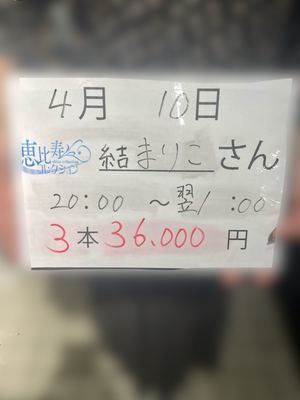 4月 10日
恵比寿
コレクション
結まりこさん
20:00 ~翌1:00
3本 36.000円